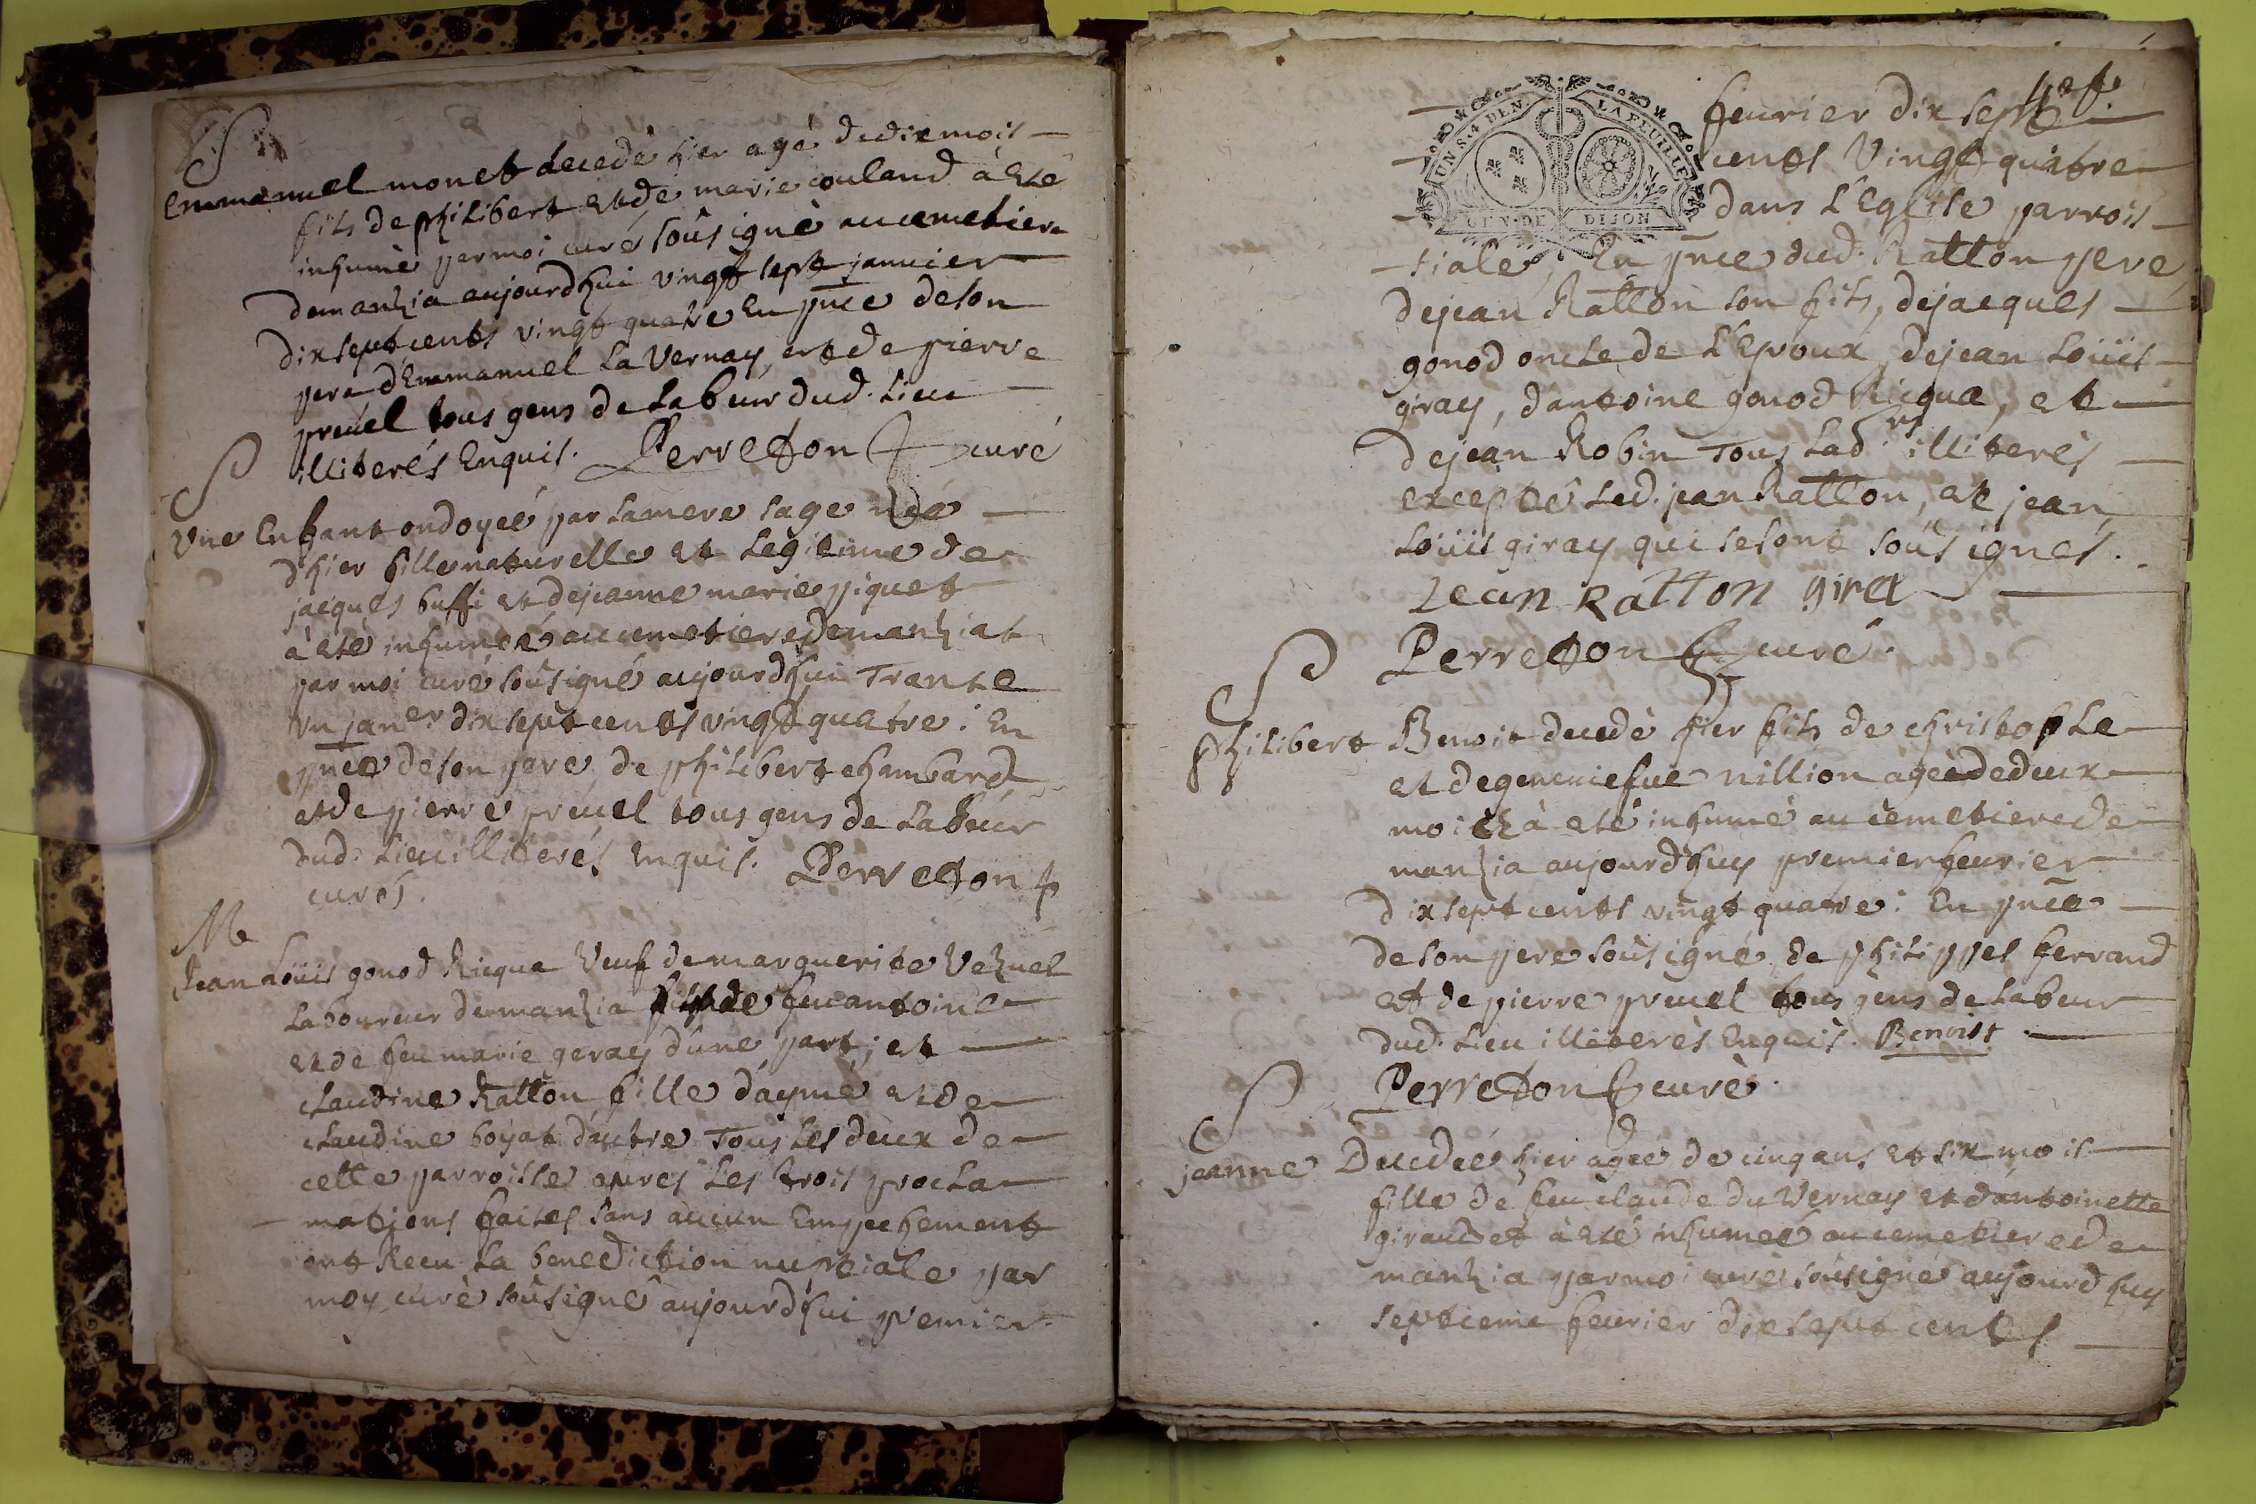 S
emmanuel monet decedé hier agé de dix mois
fils de philibert et de marie couland à eté
inhumé par moi curé soûsigné au cemetiere
de manzia aujourd'hui vingt sept januier
dix sept cents vingt quatre En pnce de son
pere d'Emmanuel La Vernay, et de pierre
preuel tous gens de Labeur dud. Lieu
illiterés Enquis. Perreton curé
S
Vne Enfant ondoyeé par La mere sage née
d'hier fille naturelle et Legitime de
jacques buffi et de jeanne marie piquet
à eté inhumeé au cemetiere de manziat
par moi curé soûsigné aujourd'hui Trante
vn janer dix sept cents vingt quatre : En
pnce de son pere, de philibert chambard
et de pierre preuel tous gens de Labeur
dud. Lieu illiterés Enquis. Perreton
curé.
M
Jean Loüis gonod Ricque Veuf de marguerite
Laboureur de manzia fils de feu antoine
et de feu marie geray d'une part ; et
claudine Ratton fille d'aymé et de
claudine boyat d'autre Tous Les deux de
cette parroisse apres Les trois procla
matjons faites sans aucun Empechement
ont Receu La benediction nuptiale par
moy curé soûsigné aujourd'hui premier
4e f.
UN SOL DEN. LA FEUILLE
GEN. DE DIJON
feurier dix sept
cents Vingt quatre
dans L'Eglise parrois
siale, En pnce dud. Ratton pere
de jean Ratton son fils, de jacques
gonod oncle de L'Epoux, de jean Loüis
giray, d'antoine gonod Ricque, et
de jean Robin Tous Labrs illiterés
excepté Led. jean Ratton, et jean
Loüis giray qui se sont soûsignés.
Jean Ratton gira
Perreton curé.
S
philibert Benoit decedé hier fils de christophle
et de geneuiefue nillion ageé de deux
mois à eté inhumé au cemetiere de
manzia aujourd'huy premier feurier
dix sept cents vingt quatre : En pnce
de son pere soûsigné, de philippes ferrand
et de pierre preuel tous gens de Labeur
dud. Lieu illiterés Enquis. Benoist
Perreton curé.
S
jeanne Decedeé hier ageé de cinq ans et six mois
fille de feu claude du Vernay et d'antoinette
giraudet à eté inhumeé au cemetiere de
manzia par moi curé soûsigné aujourd'huy
septieme feurier dix sept cents